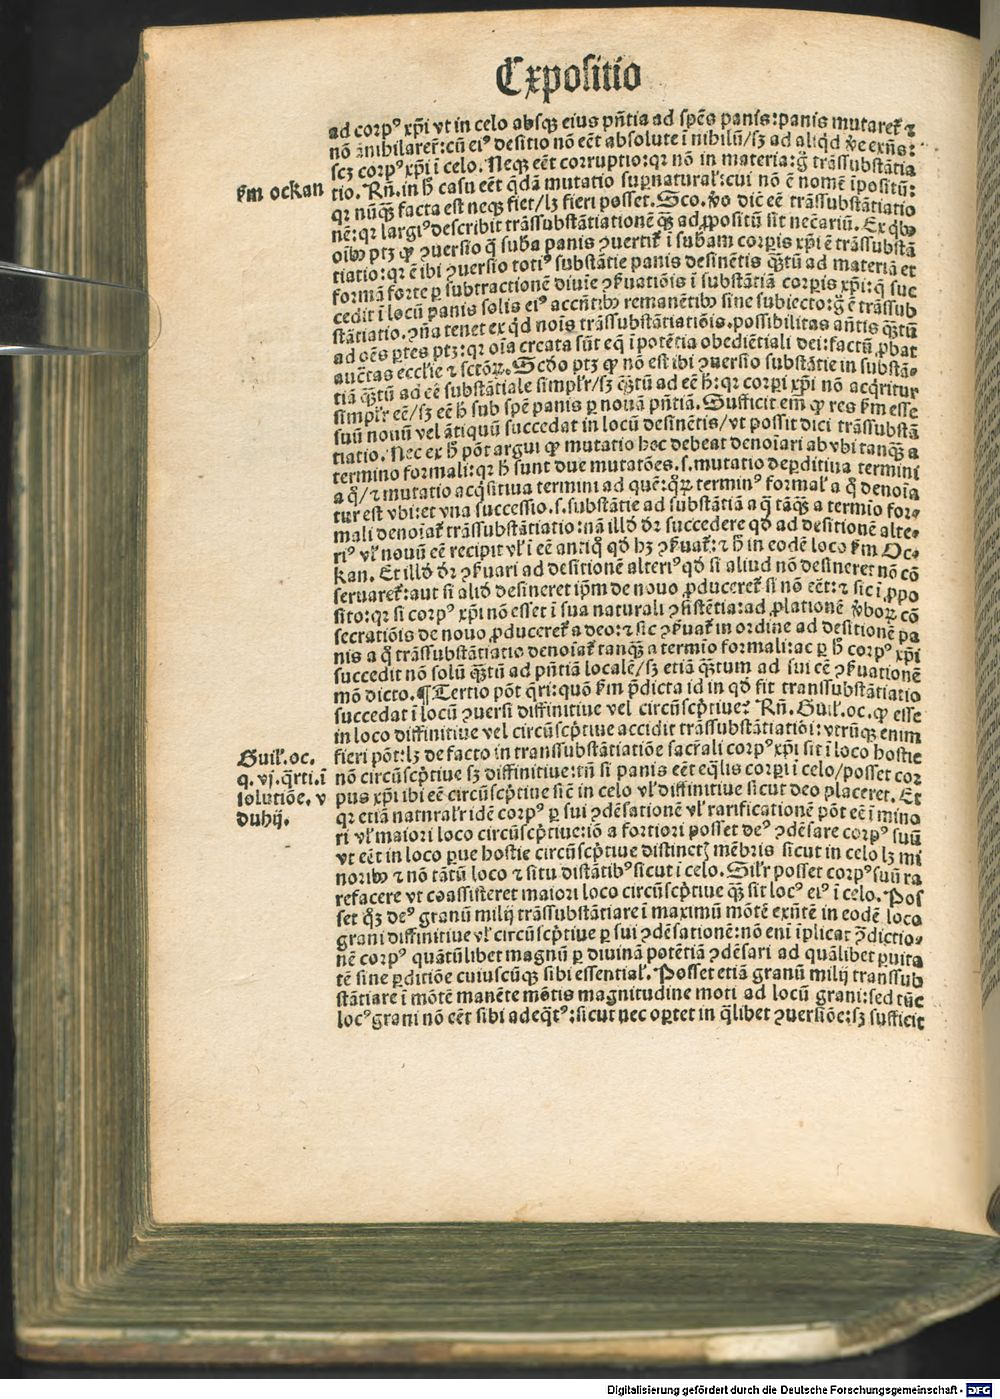 Expositio
ad corpꝰ xp̄i vt in celo absq; eius pn̄tia ad spēs panis: panis mutaret̄ ⁊
nō ānihilaret̄: cū eiꝰ desitio nō eēt absolute ī nihilū/sꝫ ad aliq̇d ꝟe exn̄s:
scꝫ corpꝰ xp̄i ī celo. Neqꝫ eēt corruptio: qꝛ nō in materia: ḡ trāssubstātia
km̄ ockan
tio. Rn̄. in h̄ casu eēt q̇dā mutatio suꝑnatural̄: cui nō ē nomē īpositū:
qꝛ nūq̄ꝫ facta est neqꝫ fiet/lꝫ fieri posset. Sco. ꝟo dic̄ eē trāssubstātiatio
nē: qꝛ largiꝰ describit trāssubstātiationē q̄ꝫ ad ꝓpositū sit nec̄ariū. Ex q̇bꝰ
oībꝰ ptꝫ ꝙ ꝯuersio q̄ sub̄a panis ꝯuertit̄ ī sub̄am corꝑis xp̄i ē trāssubstā
tiatio: qꝛ ē ibi ꝯuersio totiꝰ substātie panis desinētis q̄ꝫtū ad materiā et
formā forte ꝑ subtractionē diuīe ꝯẜuatiōis ī substātiā corꝑis xp̄i: q̄ suc
cedit ī locū panis solis eiꝰ accn̄tibꝰ remanētibꝰ sine subiecto: ḡ ē trāssub
stātiatio. ꝯn̄a tenet ex q̇d noīs trāssubstātiatiōis. possibilitas an̄tis q̄ꝫtū
ad oēs ꝑtes ptꝫ: qꝛ oīa creata sūt eq̄ ī potētia obediētiali dei: factū ꝓbat
auct̄as eccl̄ie ⁊ sctōꝝ. Scd̄o ptꝫ ꝙ nō est ibi ꝯuersio substātie in substā-
tiā q̄ꝫtū ad eē substātiale simpl̄r/sꝫ q̄ꝫtū ad eē h̄: qꝛ corꝑi xp̄i nō acq̇ritur
simpl̄r eē/sꝫ eē h̄ sub spē panis ꝑ nouā pn̄tiā. Sufficit em̄ ꝙ res km̄ esse
suū nouū vel ātiquū succedat in locū desinētis/vt possit dici trāssubstā
tiatio. Nec ex h̄ pōt argui ꝙ mutatio hec debeat denoīari ab vbi tanq̄ꝫ a
termino formali: qꝛ h̄ sunt due mutatōes. s. mutatio deꝑditiua termini
a q̊/⁊ mutatio acq̇sitiua termini ad quē: q̊ꝝ terminꝰ formal̄ a q̊ denoīa
tur est vbi: et vna successio. s. substātie ad substātiā a q̄ tāq̄ꝫ a termīo for-
mali denoīat̄ trāssubstātiatio: nā illd̄ dr̄ succedere qd̄ ad desitionē alte-
riꝰ vl̄ nouū eē recipit vl̄ ī eē antiq̊ qd̄ hꝫ ꝯẜuat̄: ⁊ h̄ in eodē loco km̄ Oc-
kan. Et illd̄ dr̄ ꝯẜuari ad desitionē alteriꝰ qd̄ si aliud nō desineret nō cō
seruaret̄: aut si alid̄ desineret ip̄m de nouo ꝓduceret̄ si nō eēt: ⁊ sic ī ꝓpo
sito: qꝛ si corpꝰ xp̄i nō esset ī sua naturali ꝯsistētia: ad ꝓlationē ꝟboꝝ cō
secratiōis de nouo ꝓduceret̄ a deo: ⁊ sic ꝯẜuat̄ in ordine ad desitionē pa
nis a q̊ trāssubstātiatio denoīat̄ tanq̄ꝫ a termīo formali: ac ꝑ h̄ corpꝰ xp̄i
succedit nō solū q̄ꝫtū ad pn̄tiā localē/sꝫ etiā q̄ꝫtum ad sui eē ꝯẜuationē
mō dicto. ¶ Tertio pōt q̄ri: quō km̄ p̄dicta id in qd̄ fit transsubstātiatio
succedat ī locū ꝯuersi diffinitiue vel circūscp̄tiue? Rn̄. Guil̄. oc. ꝙ esse
in loco diffinitiue vel circūscp̄tiue accidit trāssubstātiatiōi: vtrūqꝫ enim
Guil̄. oc.
q. vj. q̄rti. ī
solutiōe. v
dubij.
fieri pōt: lꝫ de facto in transsubstātiatiōe sacr̄ali corpꝰ xp̄i sit ī loco hostie
nō circūscp̄tiue sꝫ diffinitiue: tn̄ si panis eēt eq̄lis corꝑi ī celo/posset cor
pus xp̄i ibi eē circūscp̄tiue sic̄ in celo vl̄ diffinitiue sicut deo placeret. Et
qꝛ etiā natural̄r idē corpꝰ ꝑ sui ꝯdēsationē vl̄ rarificationē pōt eē ī mino
ri vl̄ maiori loco circūscp̄tiue: iō a fortiori posset deꝰ ꝯdēsare corpꝰ suū
vt eēt in loco ꝑue hostie circūscp̄tiue distinctꝭ mēbris sicut in celo lꝫ mi
noribꝰ ⁊ nō tātū loco ⁊ situ distātibꝰ sicut ī celo. Sil̄r posset corpꝰ suū ra
refacere vt coassisteret maiori loco circūscp̄tiue q̄ꝫ sit locꝰ eiꝰ ī celo. Pos
set q̊ꝫ deꝰ granū milij trāssubstātiare ī maximū mōtē exn̄tē in eodē loco
grani diffinitiue vl̄ circūscp̄tiue ꝑ sui ꝯdēsationē: nō eni īplicat ꝯ̄dictio-
nē corpꝰ quātūlibet magnū ꝑ diuinā potētiā ꝯdēsari ad quālibet ꝑuita
tē sine ꝑditiōe cuiuscūqꝫ sibi essential̄. Posset etiā granū milij transsub
stātiare ī mōtē manēte mōtis magnitudine moti ad locū grani: sed tūc
locꝰ grani nō eēt sibi adeq̄tꝰ: sicut nec oꝑtet in q̄libet ꝯuersiōe: sꝫ sufficit
Digitalisierung gefördert durch die Deutsche Forschungsgemeinschaft - DFG